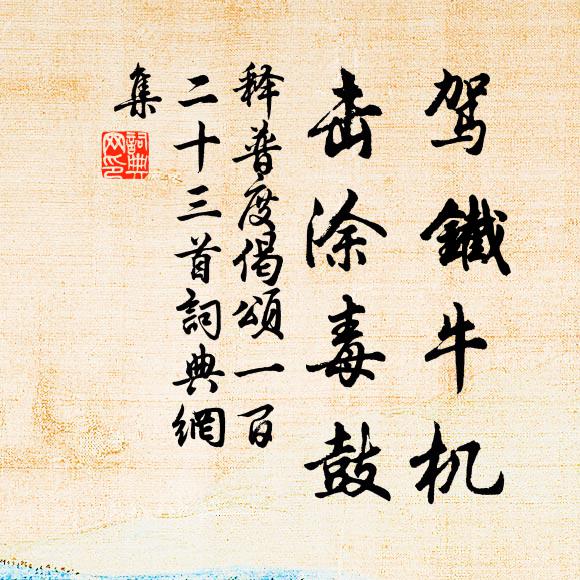 驾鐵牛机
击涂毒鼓
释普度偈頌一百
二十三首詞典網
集
詞典
网印